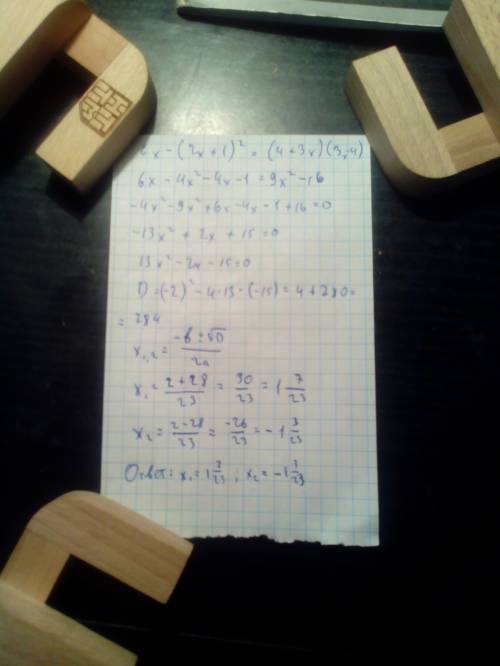 6x - (2x + 1)² = (4 + 3x)(3x - 4)
6x - 4x² - 4x - 1 = 9x² - 16
-4x² - 9x² + 6x - 4x - 1 + 16 = 0
-13x² + 2x + 15 = 0
13x² - 2x - 15 = 0
D = (-2)² - 4·13·(-15) = 4 + 780 =
= 784
x₁,₂ = (-b ± √D)/2a
x₁ = (2+28)/23 = 30/23 = 1 7/23
x₂ = (2-28)/23 = -26/23 = -1 3/23
Ответ: x₁ = 1 7/23 ; x₂ = -1 3/23